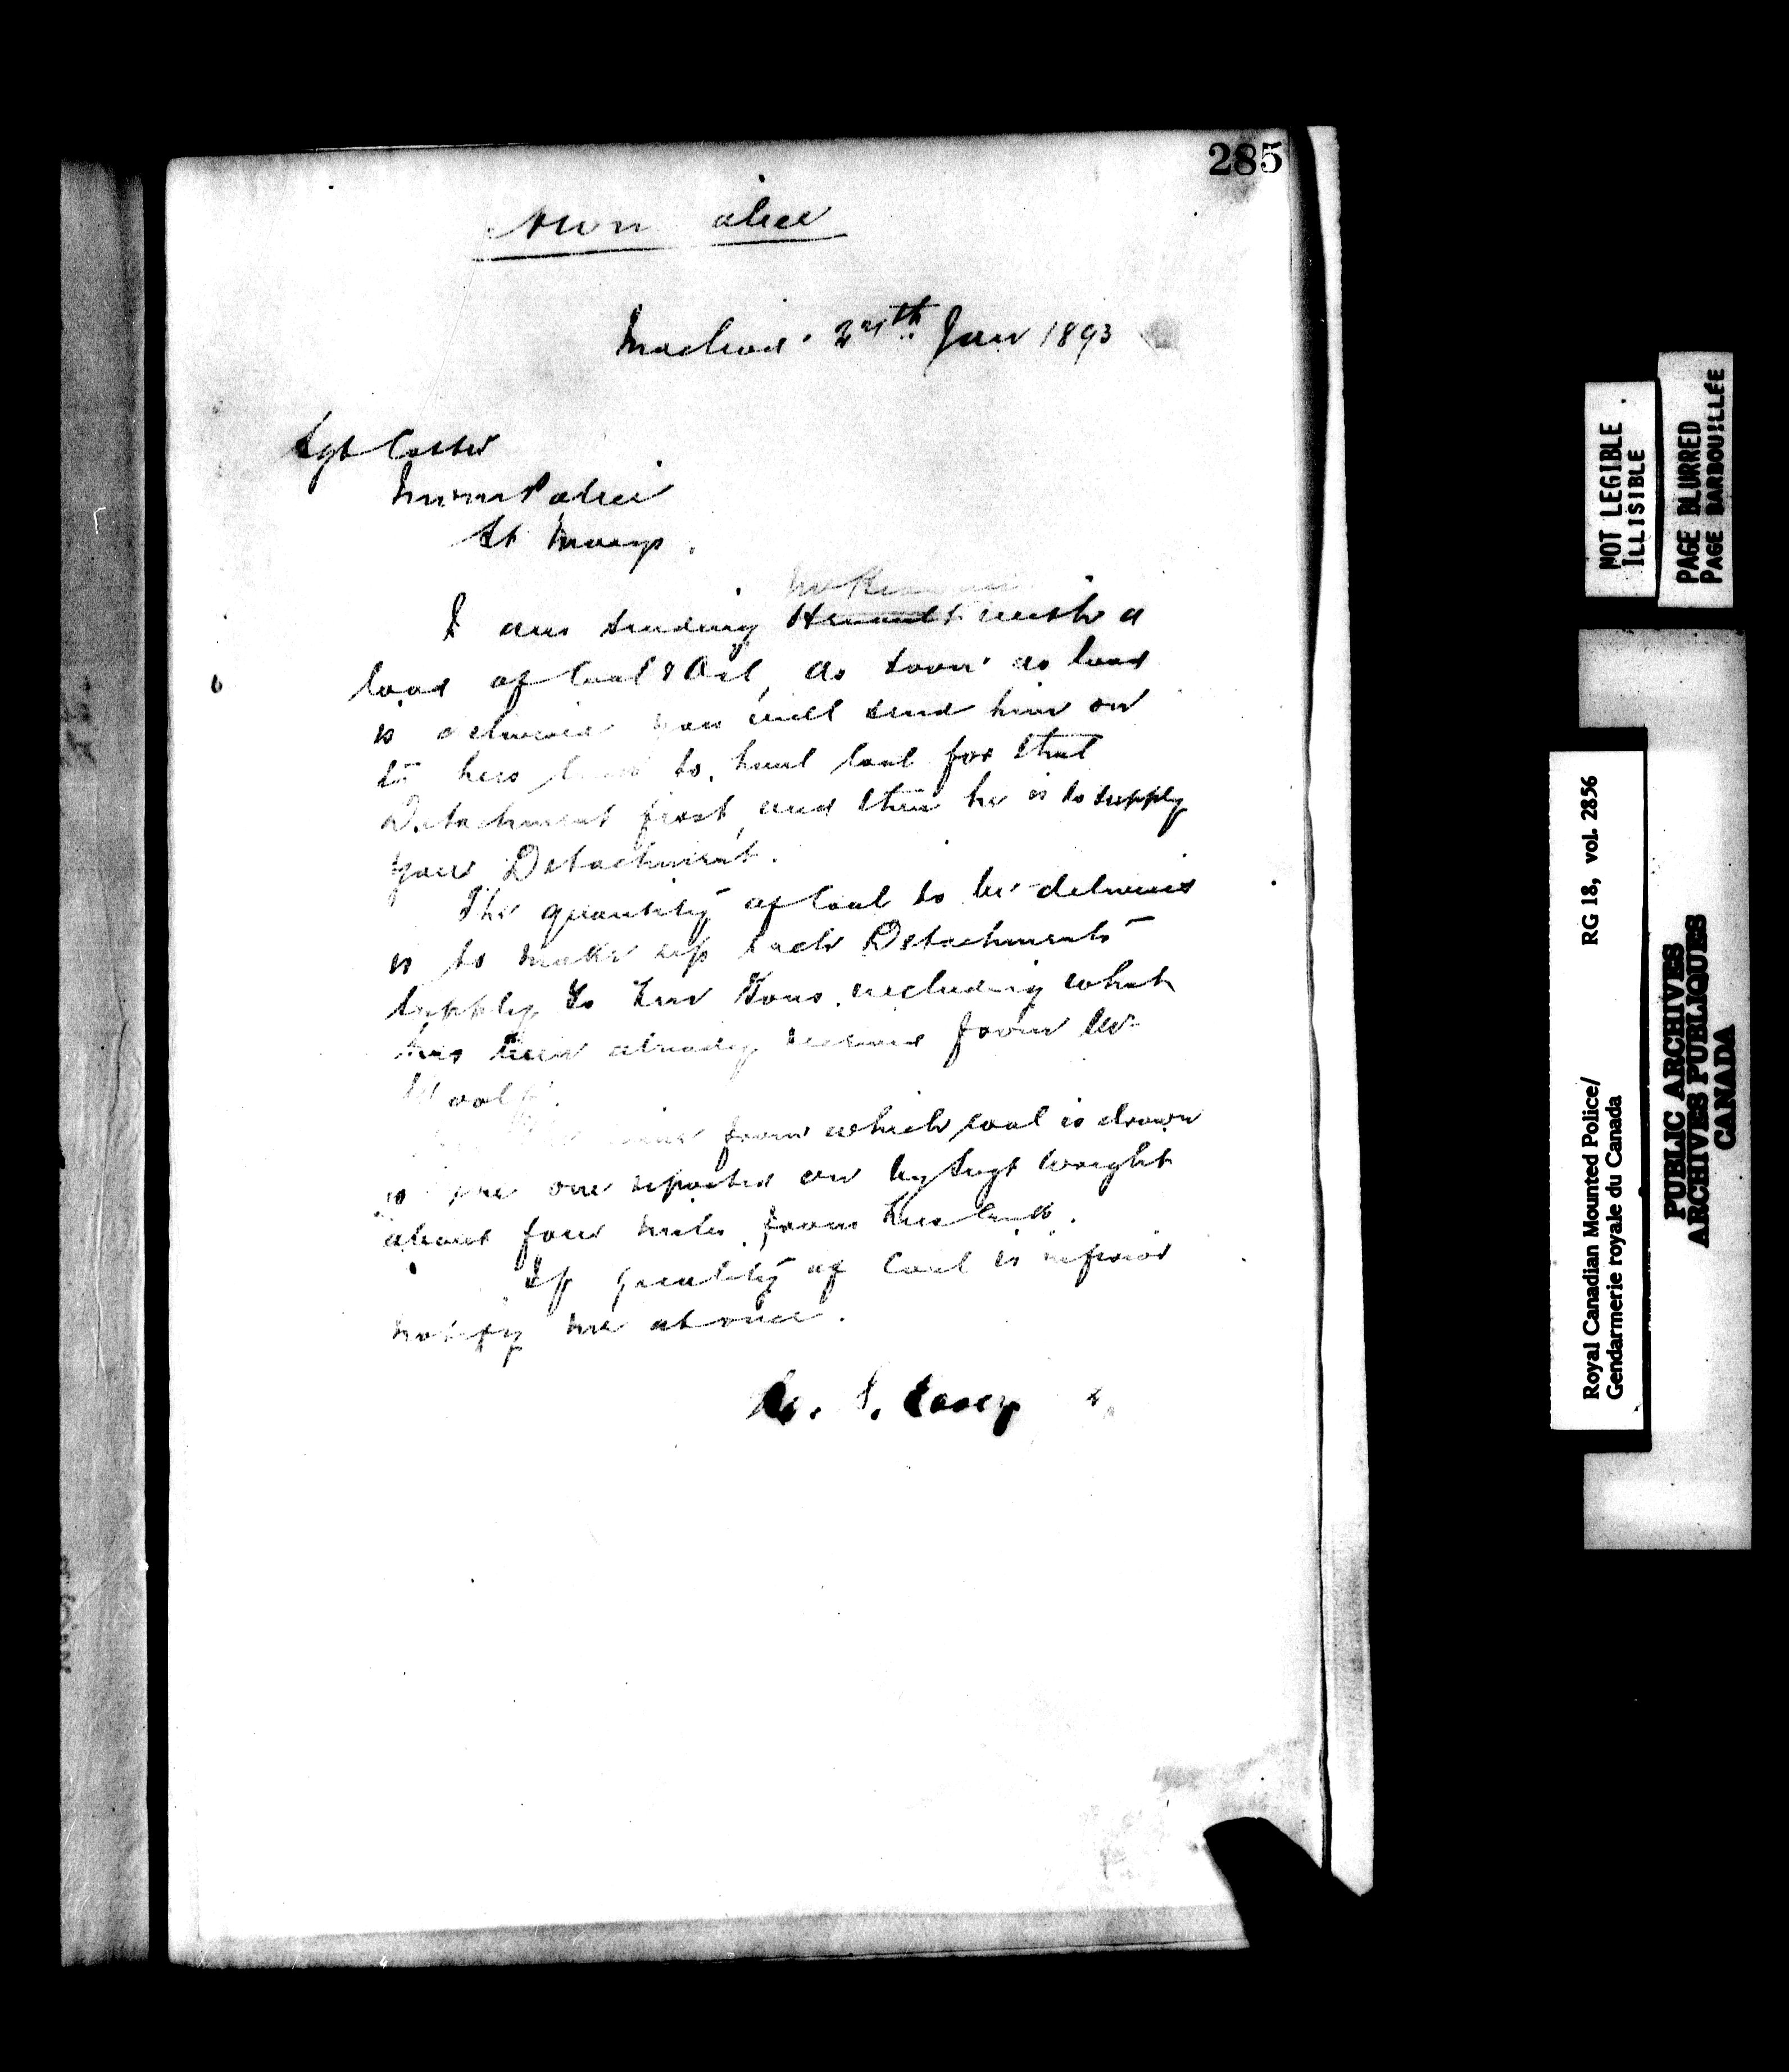 285
Macleod. Jan 1893
Sgt
Police
St Marys.
I am sending with a
load of Coal & Oil, As soon as load
is delivered you will send him on
to to haul coal for that
Detachment first, and then he is to supply
your Detachment.
The quantity of Coal to be delivered
is to make up each Detachments
supply to Tons including what
has been already received from Mr
Woolf.
from which coal is drawn
is the one reported on by Sergt Wright
about four miles from
If quality of Coal is inferior
notify me at once.
Casey
NOT LEGIBLE
ILLISIBLE
PAGE BLURRED
PAGE BARBOUILLÉE
Royal Canadian Mounted Police/ RG 18, vol. 2856
Gendarmerie royale du Canada
PUBLIC ARCHIVES
ARCHIVES PUBLIQUES
CANADA